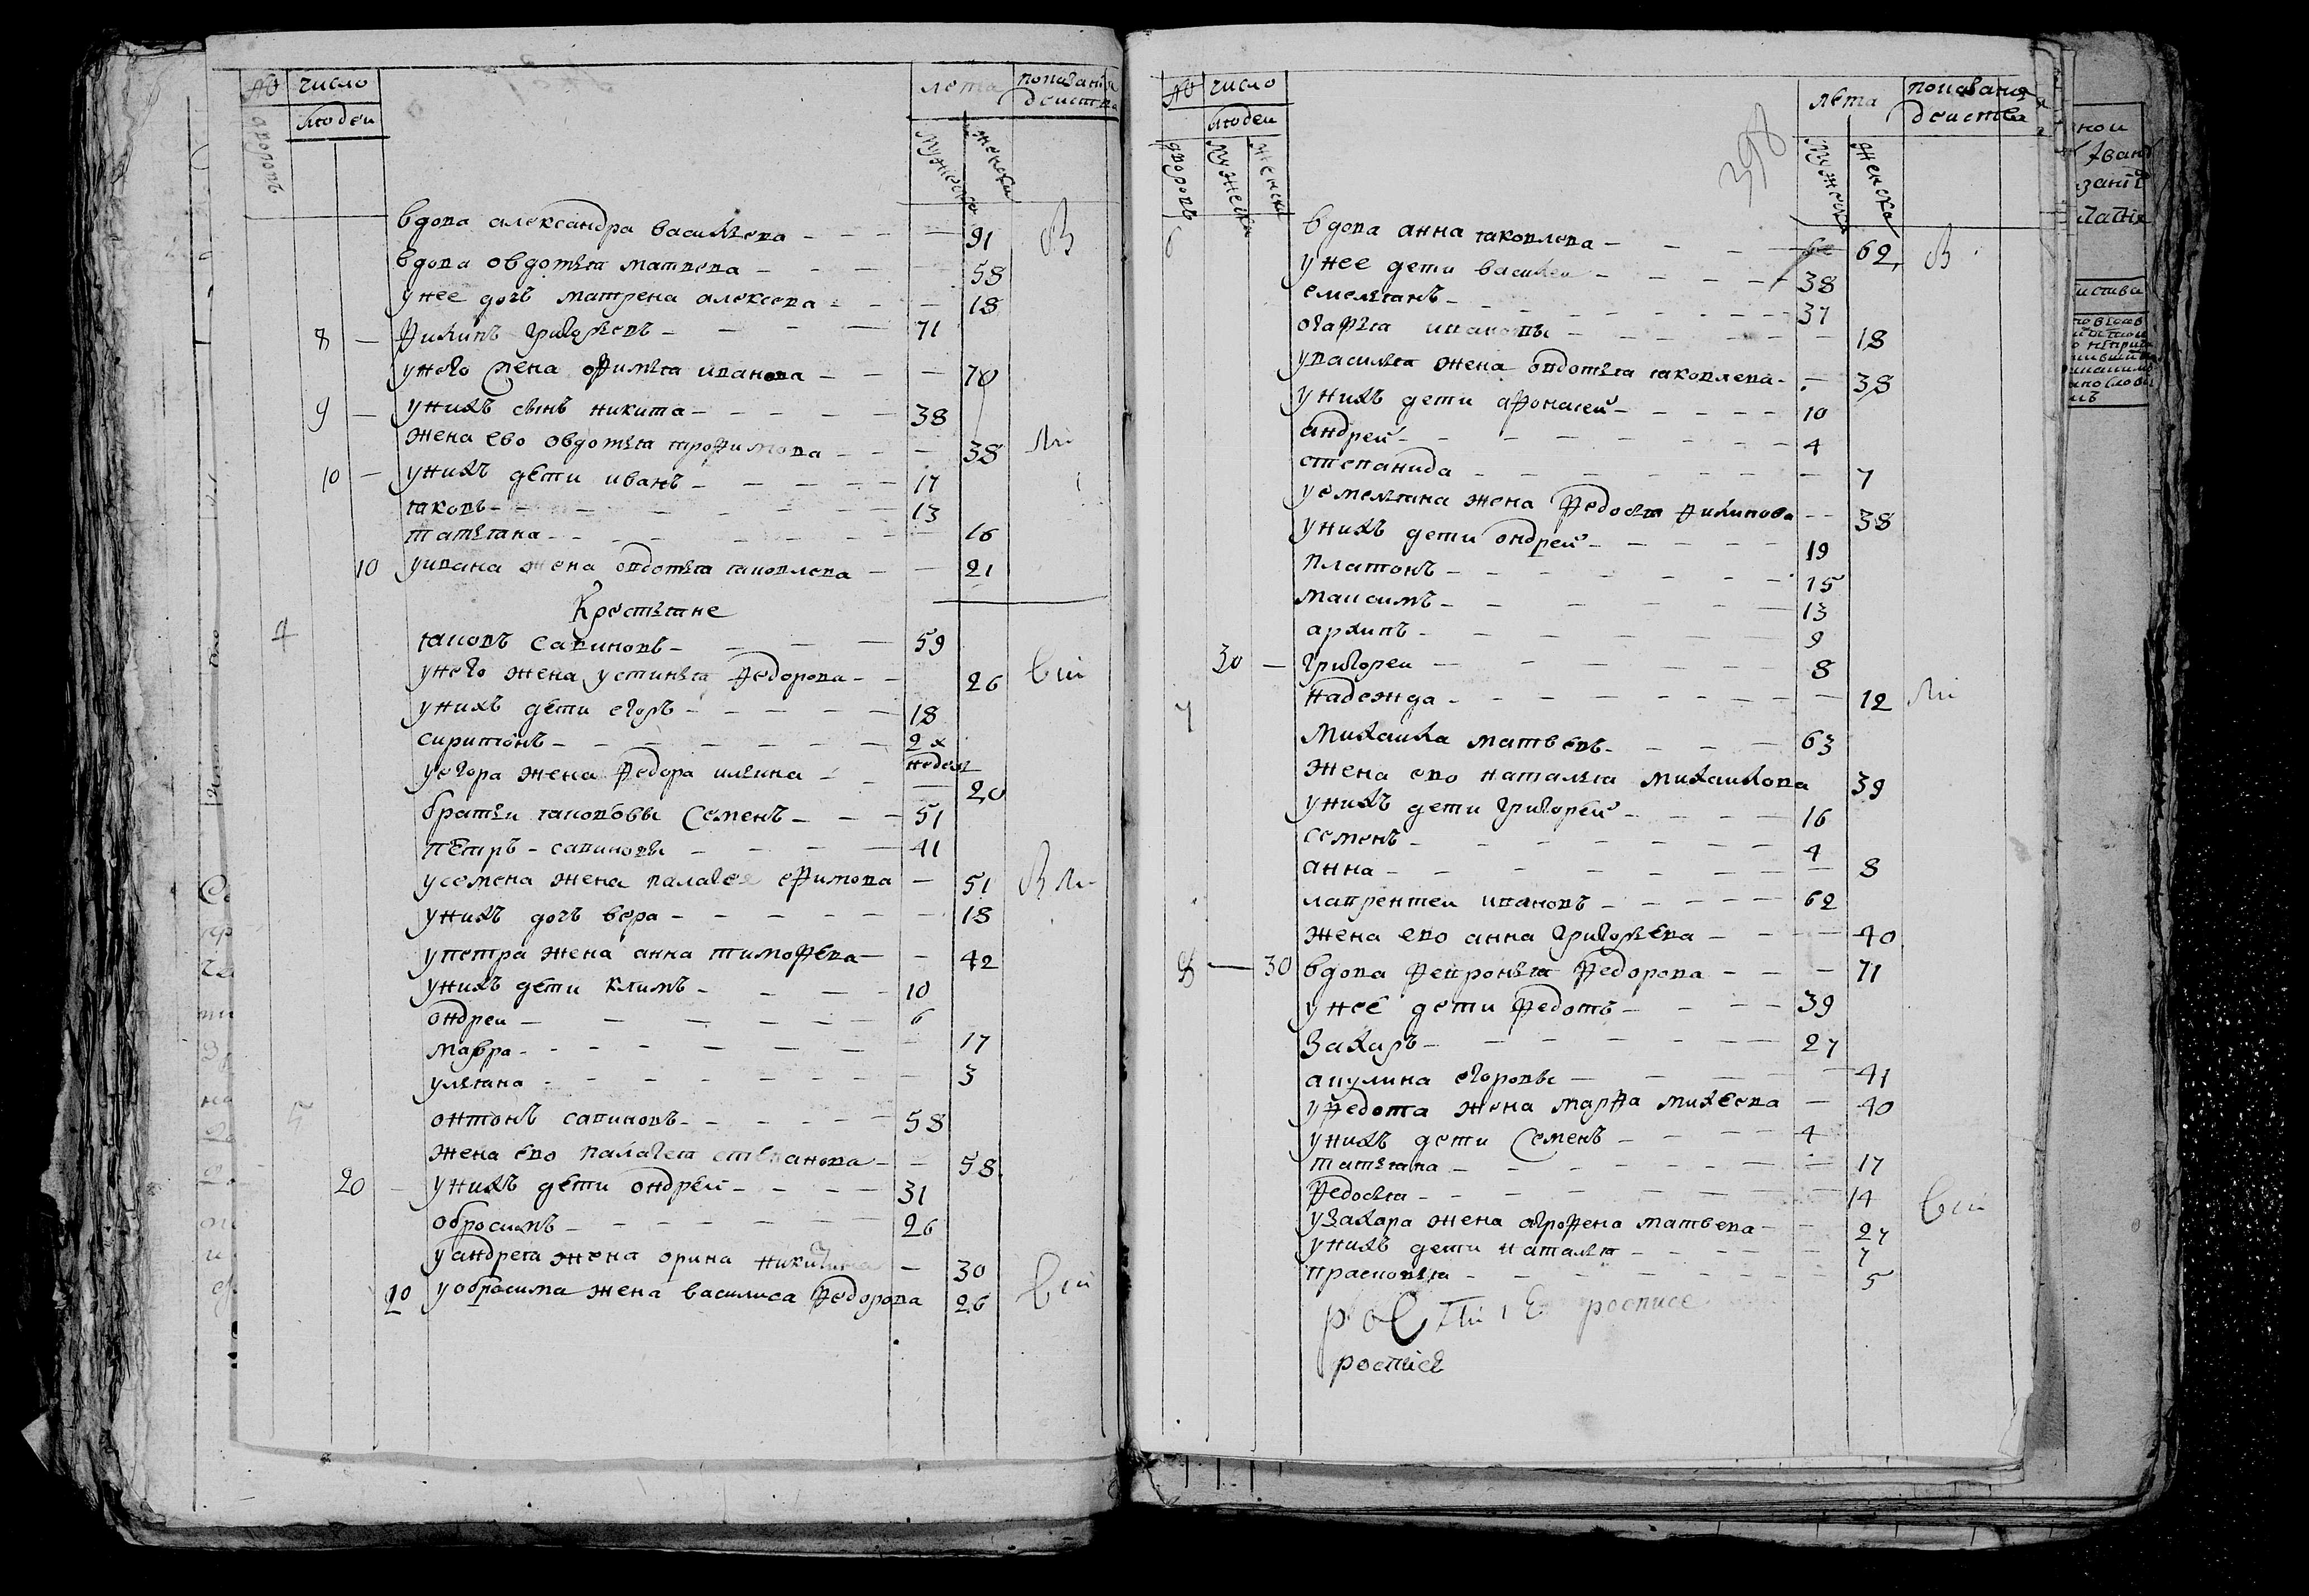 № число лета
людеи
дворовъ мужеска женска
вдова александра васильева - - - - 91 в
вдова овдотья матвева - - - - 58
у нее дочь матрена алексева - - - 18
8 - филипъ григорьевъ - - - - 71
у него жена офимья иванова - - - 70
9 - у нихъ сынъ никита - - - - - 38
жена ево овдотья трофимова - - - 38
10 - у нихъ дети иванъ - - - - - 17
яковъ - - - - - - - 13
татьяна - - - - - - - 16
10 у ивана жена овдотья яковлева - - 21
Крестьяне
4 яковъ савиновъ - - - - 59
у него жена устинья федорова - - 26
у нихъ дети егоръ - - - - - 18
сиритонъ - - - - - - - 2 х
недель
у егора жена федора ильина - - - 20
братьи яковъвы Семенъ - - - 51
петръ - савиновы - - - - 41
у семена жена палагея ефимова - 51
у нихъ дочь вера - - - - - - 18
у петра жена анна тимофева - - 42
у нихъ дети климъ - - - - 10
ондреи - - - - - - - 6
мавра - - - - - - - - 17
ульяна - - - - - - - - 3
5 онтонъ савиновъ - - - - - 58
жена ево палагея степанова - - 58
20 - у нихъ дети ондреи - - - - 31
обросимъ - - - - - - - 26
у андрея жена орина никитина - 30
20 у обросима жена василиса федорова 26
№ число лета
людеи
дворовъ мужеска женска мужеска женска
398
6 вдова анна яковлева - - - - 62 в
у нее дети василеи - - - - 38
емельянъ - - - - - - - - 37
огафья ивановы - - - - - - 18
у василья жена овдотья яковлева - - 38
у нихъ дети афонасей - - - - - 10
андрей - - - - - - - - 4
степанида - - - - - - - - 7
у емельяна жена федосья филипова - - 38
у нихъ дети ондрей - - - - - 19
платонъ - - - - - - - - 15
максимъ - - - - - - - 13
архипъ - - - - - - - 9
30 - григореи - - - - - - 8
надежда - - - - - - - - 12
7 михаила матвевъ - - - - - 63
жена ево наталья михаилова 39
у нихъ дети григорей - - - - - 16
семенъ - - - - - - - - 4
анна - - - - - - - - 8
лаврентеи ивановъ - - - - - 62
жена ево анна григорьева - - - - 40
8 - 30 вдова февронья федорова - - - - 71
у нее дети федотъ - - - - 39
Захаръ - - - - - - - - 27
акулина егоровы - - - - - 41
у федота жена марфа михеева - 40
у нихъ дети Семенъ - - - - 4
татьяна - - - - - - - - 17
федосья - - - - - - - - 14
у Захара жена агрофена матвева - - 27
у нихъ дети наталья - - - - - - 7
прасковья - - - - - - - - 5
росписе
роспісе